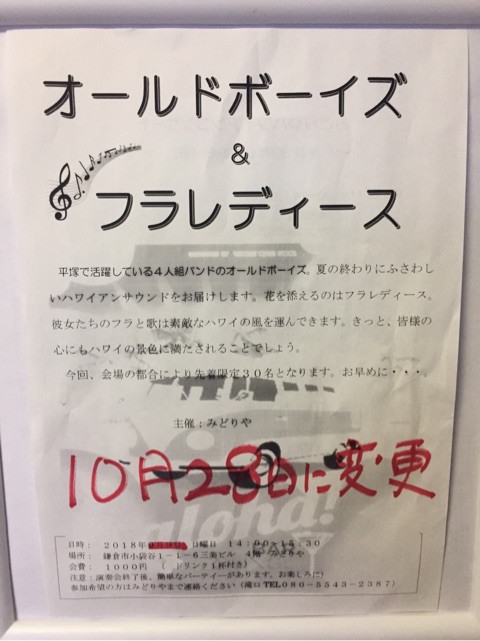 オールドボーイズ
&
フラレディース
平塚で活躍している4人組バンドのオールドボーイズ。夏の終わりにふさわし
いハワイアンサウンドをお届けします。花を添えるのはフラレディース。
彼女たちのフラと歌は素敵なハワイの風を運んできます。きっと、皆様の
心にもハワイの景色に満たされることでしょう。
今回、会場の都合により先着限定30名となります。お早めに・・・。
主催:みどりや
10月28日に変更
aloha!
日時: 2018年 日曜日 14:00-15:30
場所: 鎌倉市小袋谷1-1-6三葉ビル 4階 みどりや
会費: 1000円 ( ドリンク1杯付き)
注意:演奏会終了後、簡単なパーティーがあります。お楽しみに!
参加希望の方はみどりやまで連絡ください(滝口TEL080-5543-2387)